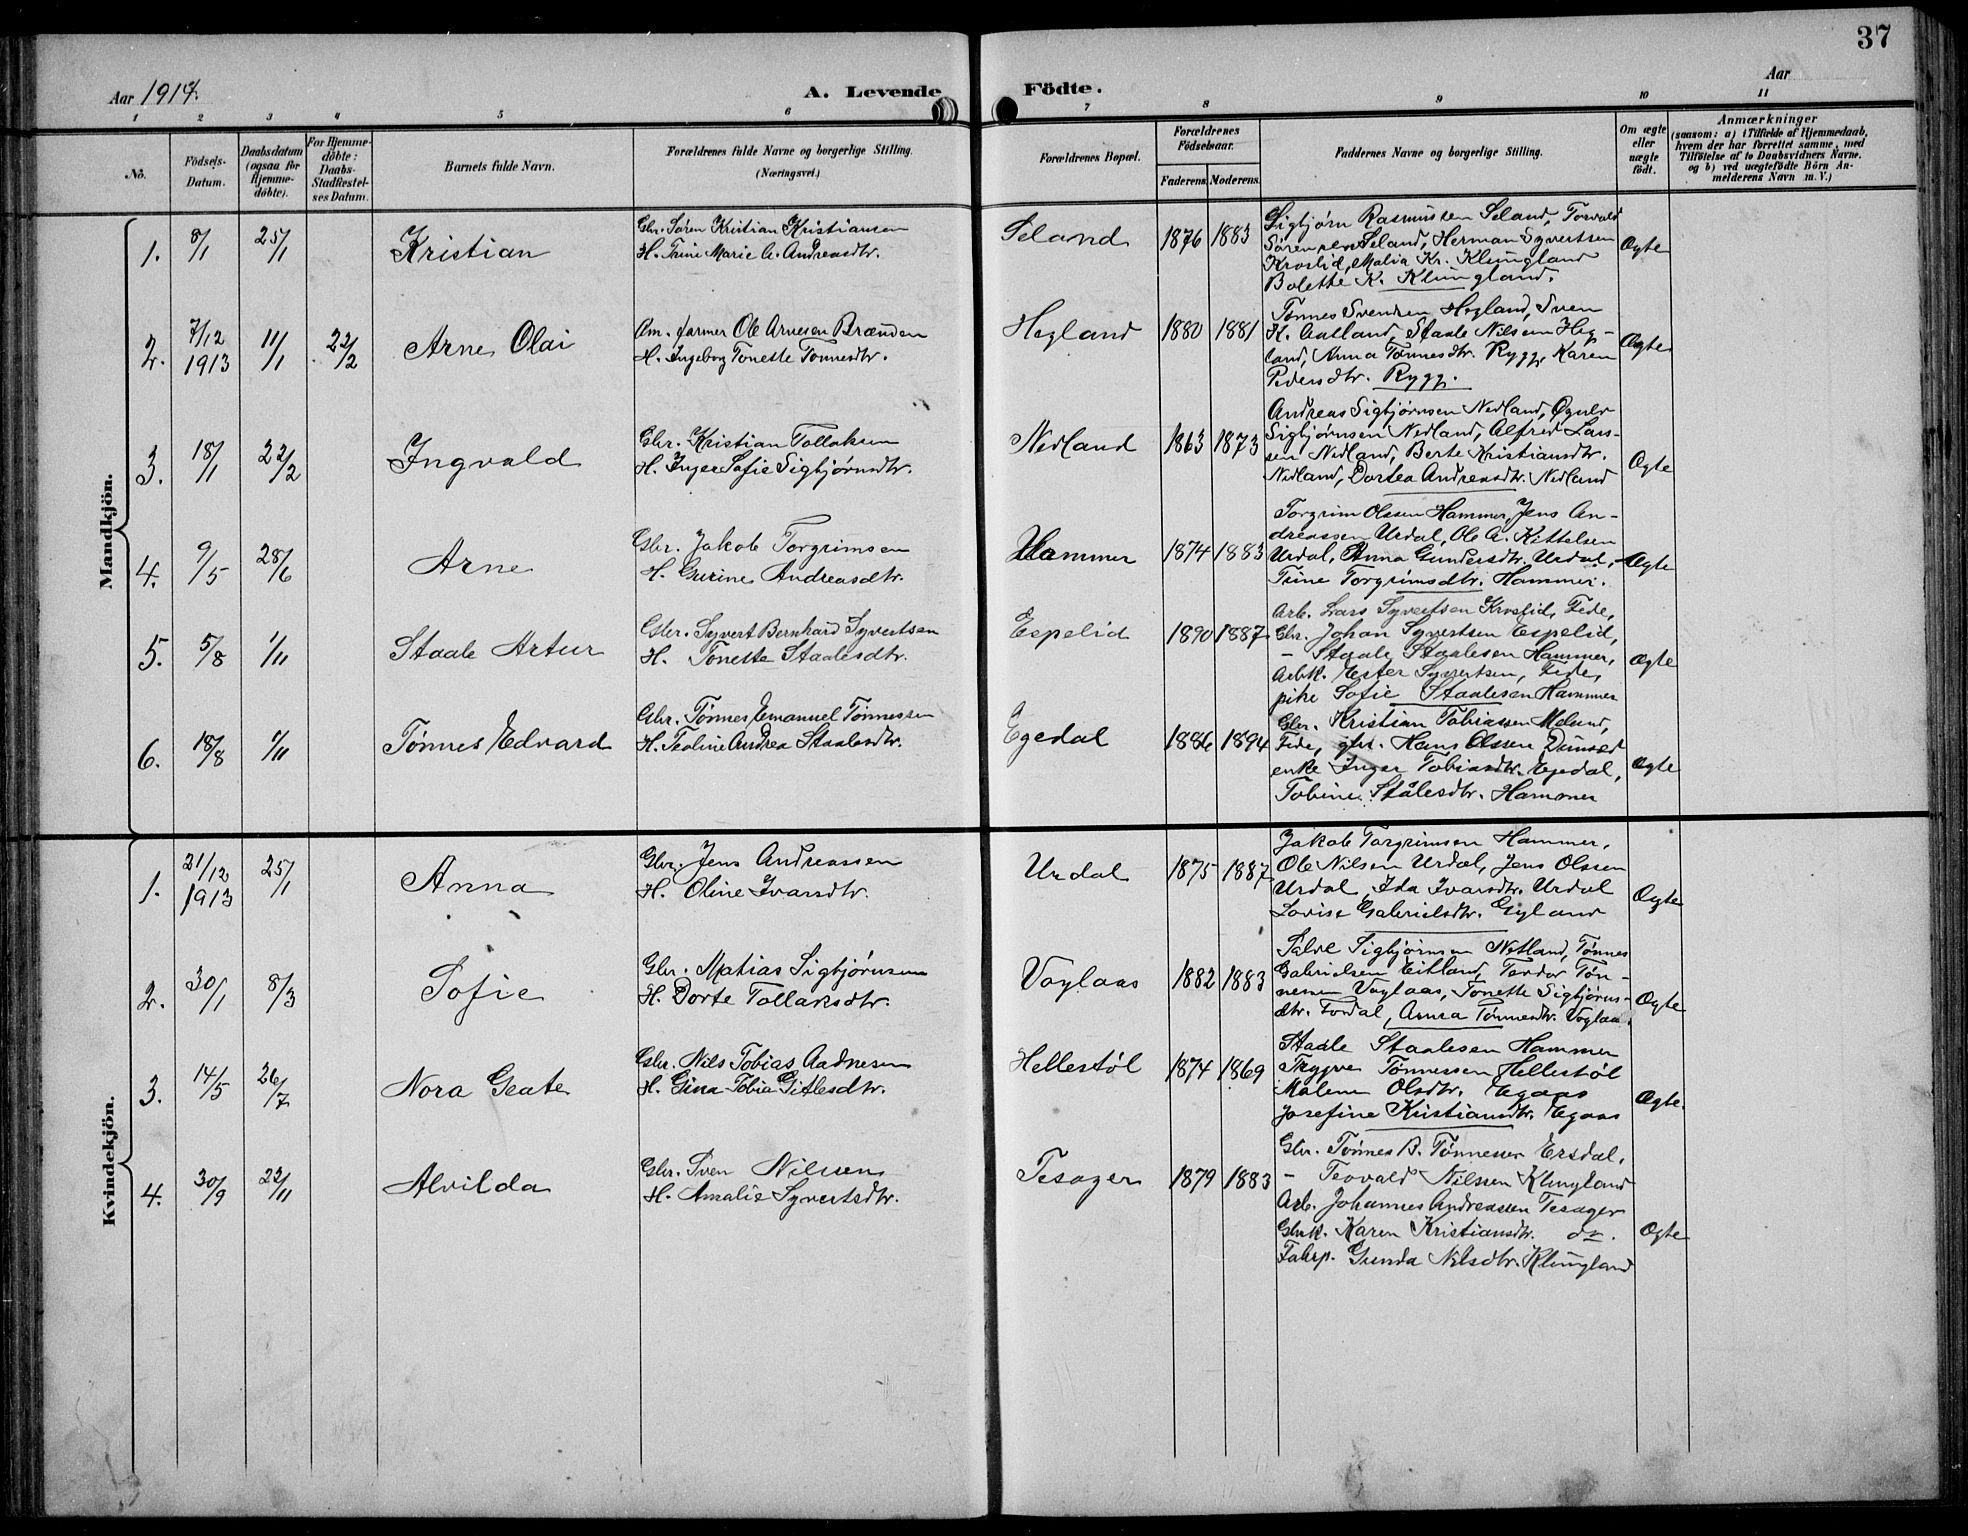 37
Aar 1914.
A. Levende
Födte.
Aar
1 2 3 4 5 6 7 8 9 10 11
No.
Födsels-Datum.
Daabsdatum (ogsaa for Hjemmedöbte).
For Hjemmedöbte: Daabs-Stadfestelses Datum.
Barnets fulde Navn.
Forældrenes fulde Navne og borgerlige Stilling.
(Næringsvei.)
Forældrenes Bopæl.
Forældrenes Födselsaar.
Faderens. Moderens.
Faddernes Navne og borgerlige Stilling.
Om ægte eller uægte födt.
Anmærkninger
(saasom: a) i Tilfælde af Hjemmedaab,
hvem der har forrettet samme, med
Tilföielse af to Daabsvidners Navne.
og b) ved uægtefödte Börn An-
melderens Navn m. V.)
Mandkjön.
1. 8/1 25/1 Kristian
Gbr. Søren Kristian Kristiansen
H. Trine Marie A. Andreasdtr.
Seland 1876 1883
Sigbjørn Rasmussen Seland, Torvald
Sørensen Seland, Herman Syvertsen
Kroslid, Malia Kr. Klungland
Bolette K. Klungland.
Ægte
2. 7/12 1913 11/1 22/2 Arne Olai
Am. farmer Ole Arnesen Brænden
H. Ingeborg Tonette Tønnesdtr.
Hegland 1880 1881
Tønnes Svendsen Hegland, Sven
K. Aatland, Staale Nilsen Heg-
land, Anna Tønnesdtr. Rygg, Karen
Pedersdtr. Rygg.
Ægte
3. 18/1 22/2 Ingvald
Gbr. Kristian Tollaksen
H. Inger Sofie Sigbjørnsdtr.
Nedland 1863 1873
Andreas Sigbjørnsen Nedland,
Sigbjørnsen Nedland, Alfred Las-
sen Nedland, Berte Kristiansdtr.
Nedland, Dortea Andreasdtr. Nedland
Ægte
4. 9/5 28/6 Arne
Gbr. Jakob Torgrimsen
H. Gurine Andreasdtr.
Hammer 1874 1883
Torgrim Olssen Hammer, Jens An-
dreassen Urdal, Ole A. Kittelsen
Urdal, Anna Gundersdtr. Urdal,
Trine Torgrimsdtr. Hammer.
Ægte
5. 5/8 1/11 Staale Artur
Gbr. Syvert Bernhard Syvertsen
H. Tonette Staalesdtr.
Espelid 1890 1887
Arb. Lars Syvertsen Kroslid, Fede,
Gbr. Johan Syvertsen Espelid,
- Staale Staalesen Hammer,
Arbk. Ester Syvertsen, Fede,
pike Sofie Staalesen Hammer
Ægte
6. 18/8 1/11 Tønnes Edvard
Gbr. Tønnes Emanuel Tønnessen
H. Teoline Andrea Staalesdtr.
Egedal 1886 1894
Gbr. Kristian Tobiassen Melund,
Fede, gbr. Hans Olssen
enke Inger Tobiasdtr. Egedal,
Tobine Stålesdtr. Hammer
Ægte
Kvindekjön.
1. 21/12 1913 25/1 Anna
Gbr. Jens Andreassen
H. Oline Ivarsdtr.
Urdal 1875 1887
Jakob Torgrimsen Hammer,
Ole Nilsen Urdal, Jens Olssen
Urdal, Ida Ivarsdtr. Urdal
Lovise Gabrielsdtr. Gyland
Ægte
2. 30/1 8/3 Sofie
Gbr. Matias Sigbjørnsen
H. Dorte Tollaksdtr.
Voglaas 1882 1883
Salve Sigbjørnsen Netland, Tønnes
Gabrielsen Eitland, Teodor Tøn-
nesen Voglaas, Tonette Sigbjørns-
dtr. Fordal, Anna Tønnesdtr. Voglaas.
Ægte
3. 14/5 26/7 Nora Geate
Gbr. Nils Tobias Aadnesen
H. Gina Tobia Gitlesdtr.
Hellestøl 1874 1869
Staale Staalesen Hammer
Trygve Tønnessen Hellestøl
Malene Olsdtr. Egaas
Josefine Kristiansdtr. Egaas
Ægte.
4. 30/9 22/11 Alvilda
Gbr. Sven Nilssen
H. Amalie Syvertsdtr.
Tesager 1879 1883
Gbr. Tønnes B. Tønnesen Ersdal,
- Teovald Nilssen Klungland
Arb. Johannes Andreassen Tesager
Gbrk. Karen Kristiansdtr. do.
Gunda Nilsdtr. Klungland
Ægte